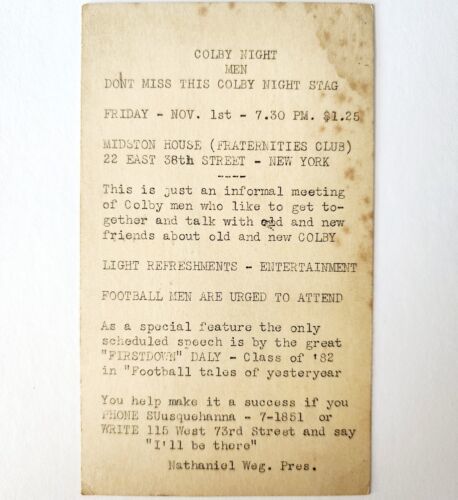 COLBY NIGHT
MEN
DONT MISS THIS COLBY NIGHT STAG
FRIDAY - NOV. 1st - 7.30 PM. $1.25
MIDSTON HOUSE (FRATERNITIES CLUB)
22 EAST 38th STREET - NEW YORK
----
This is just an informal meeting
of Colby men who like to get to-
gether and talk with old and new
friends about old and new COLBY
LIGHT REFRESHMENTS - ENTERTAINMENT
FOOTBALL MEN ARE URGED TO ATTEND
As a special feature the only
scheduled speech is by the great
"FIRSTDOWN" DALY - Class of '82
in "Football tales of yesteryear
You help make it a success if you
PHONE SUusquehanna - 7-1851 or
WRITE 115 West 73rd Street and say
"I'll be there"
Nathaniel Weg. Pres.